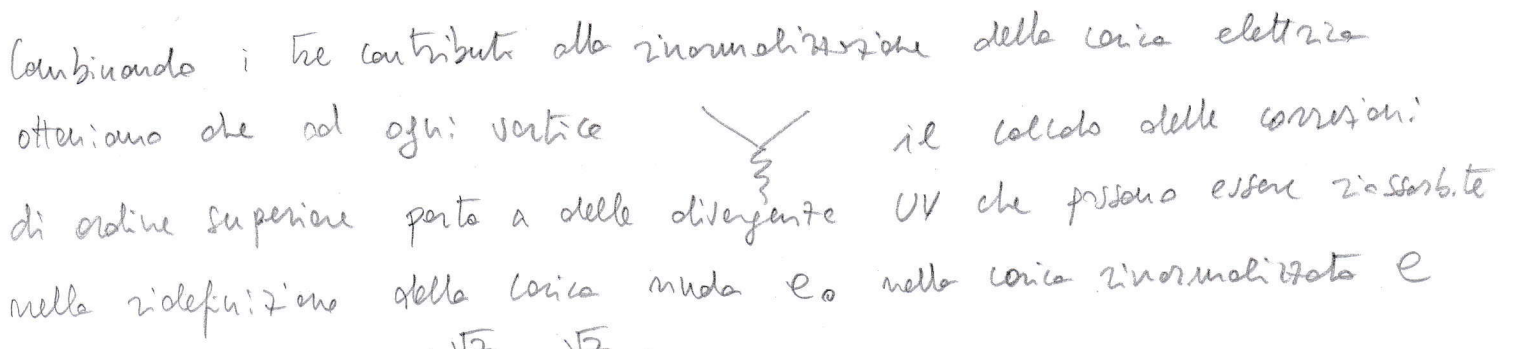 Combinando i tre contributi alla rinormalizzazione della carica elettrica
otteniamo che ad ogni vertice il calcolo delle correzioni
di ordine superiore porta a delle divergenze UV che possono essere riassorbite
nella ridefinizione della carica nuda e₀ nella carica rinormalizzata e
√Z √Z